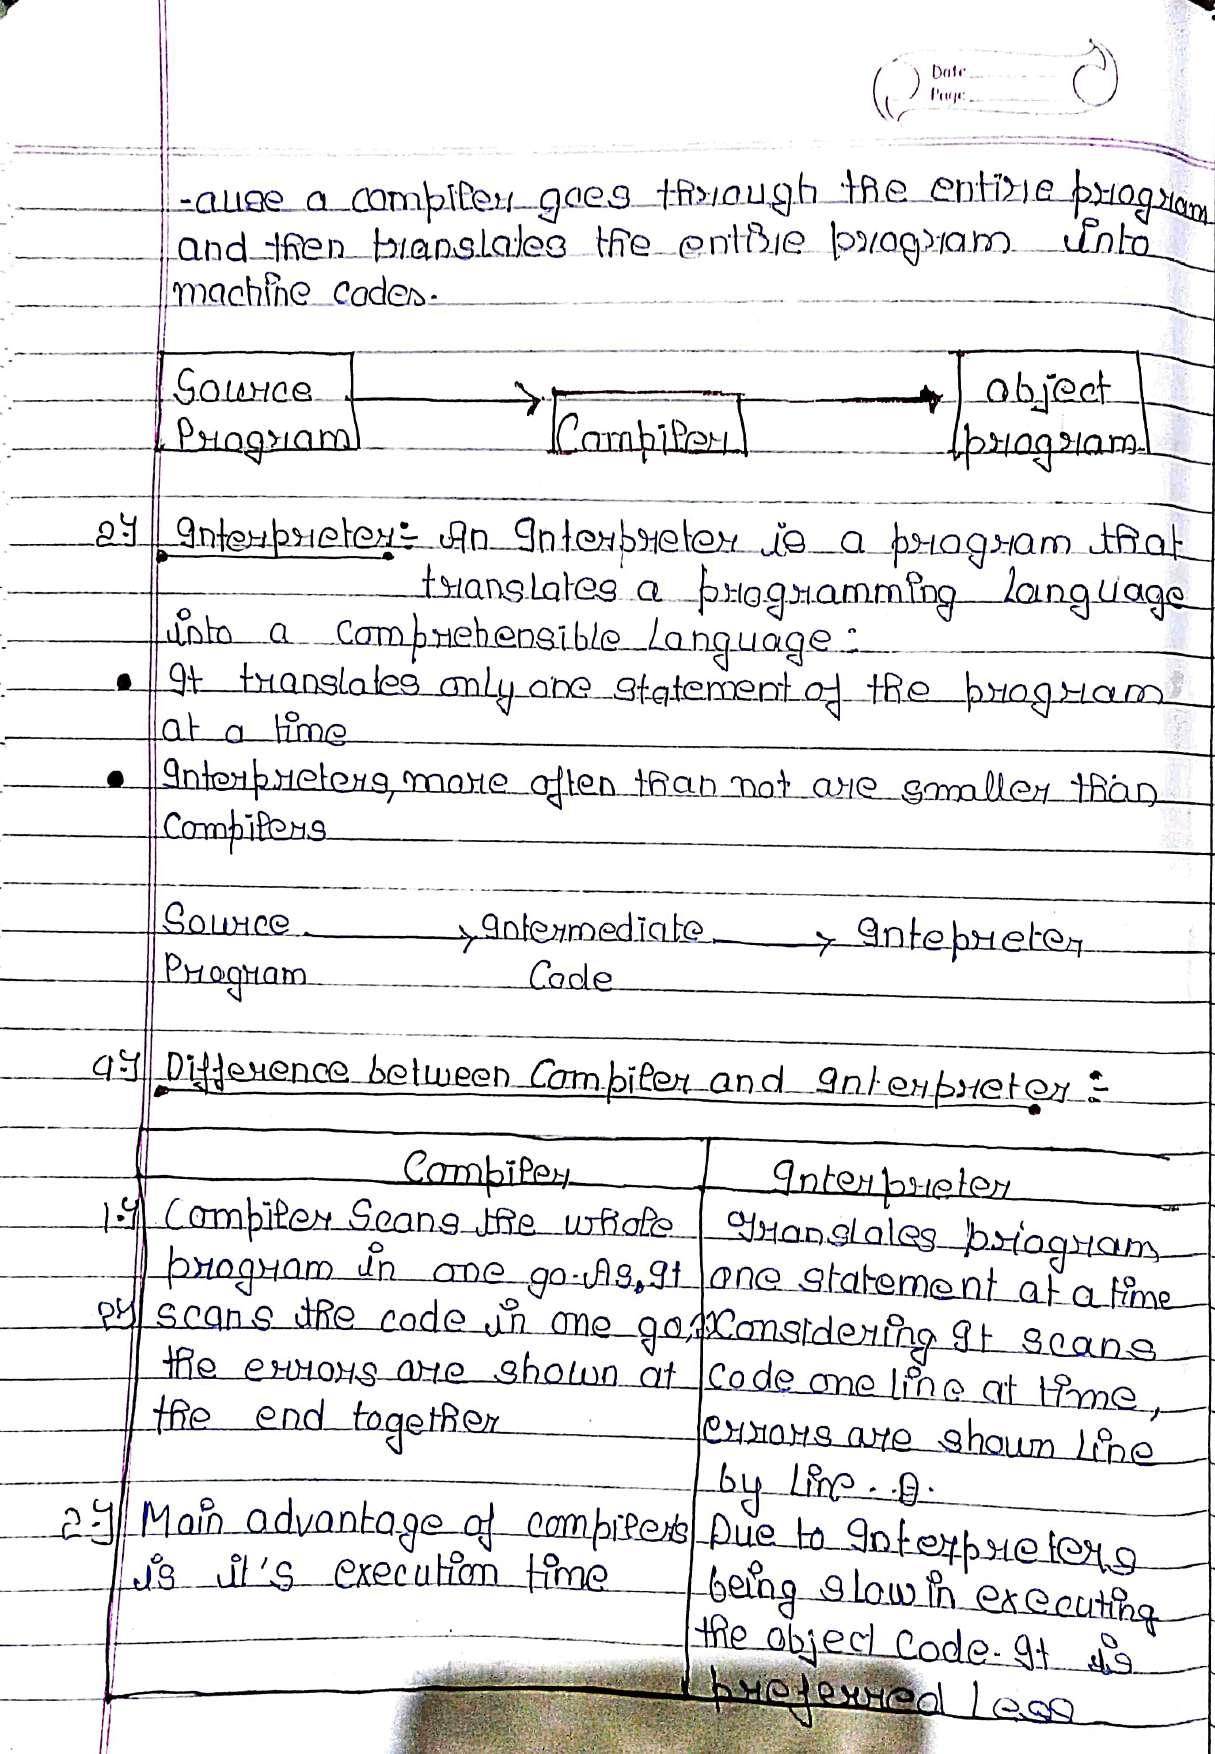 Date
Page
-ause a compiler goes through the entire program
and then translates the entire program into
machine codes.
Source
Program
Compiler
object
program
2) Interpreter:- An Interpreter is a program that
translates a programming language
into a comprehensible language:-
• It translates only one statement of the program
at a time
• Interpreters, more often than not are smaller than
Compilers
Source → Intermediate → Intepreter
Program Code
Difference between Compiler and Interpreter :-
Compiler
1.) Compiler Scans the whole
program in one go. As, It
2) scans the code in one go,
the errors are shown at
the end together
2) Main advantage of compilers
is it's execution time
Interpreter
Translates program
one statement at a time
Considering It scans
code one line at time,
errors are shown line
by line.
Due to Interpreters
being slow in executing
the object code. It is
preferred less